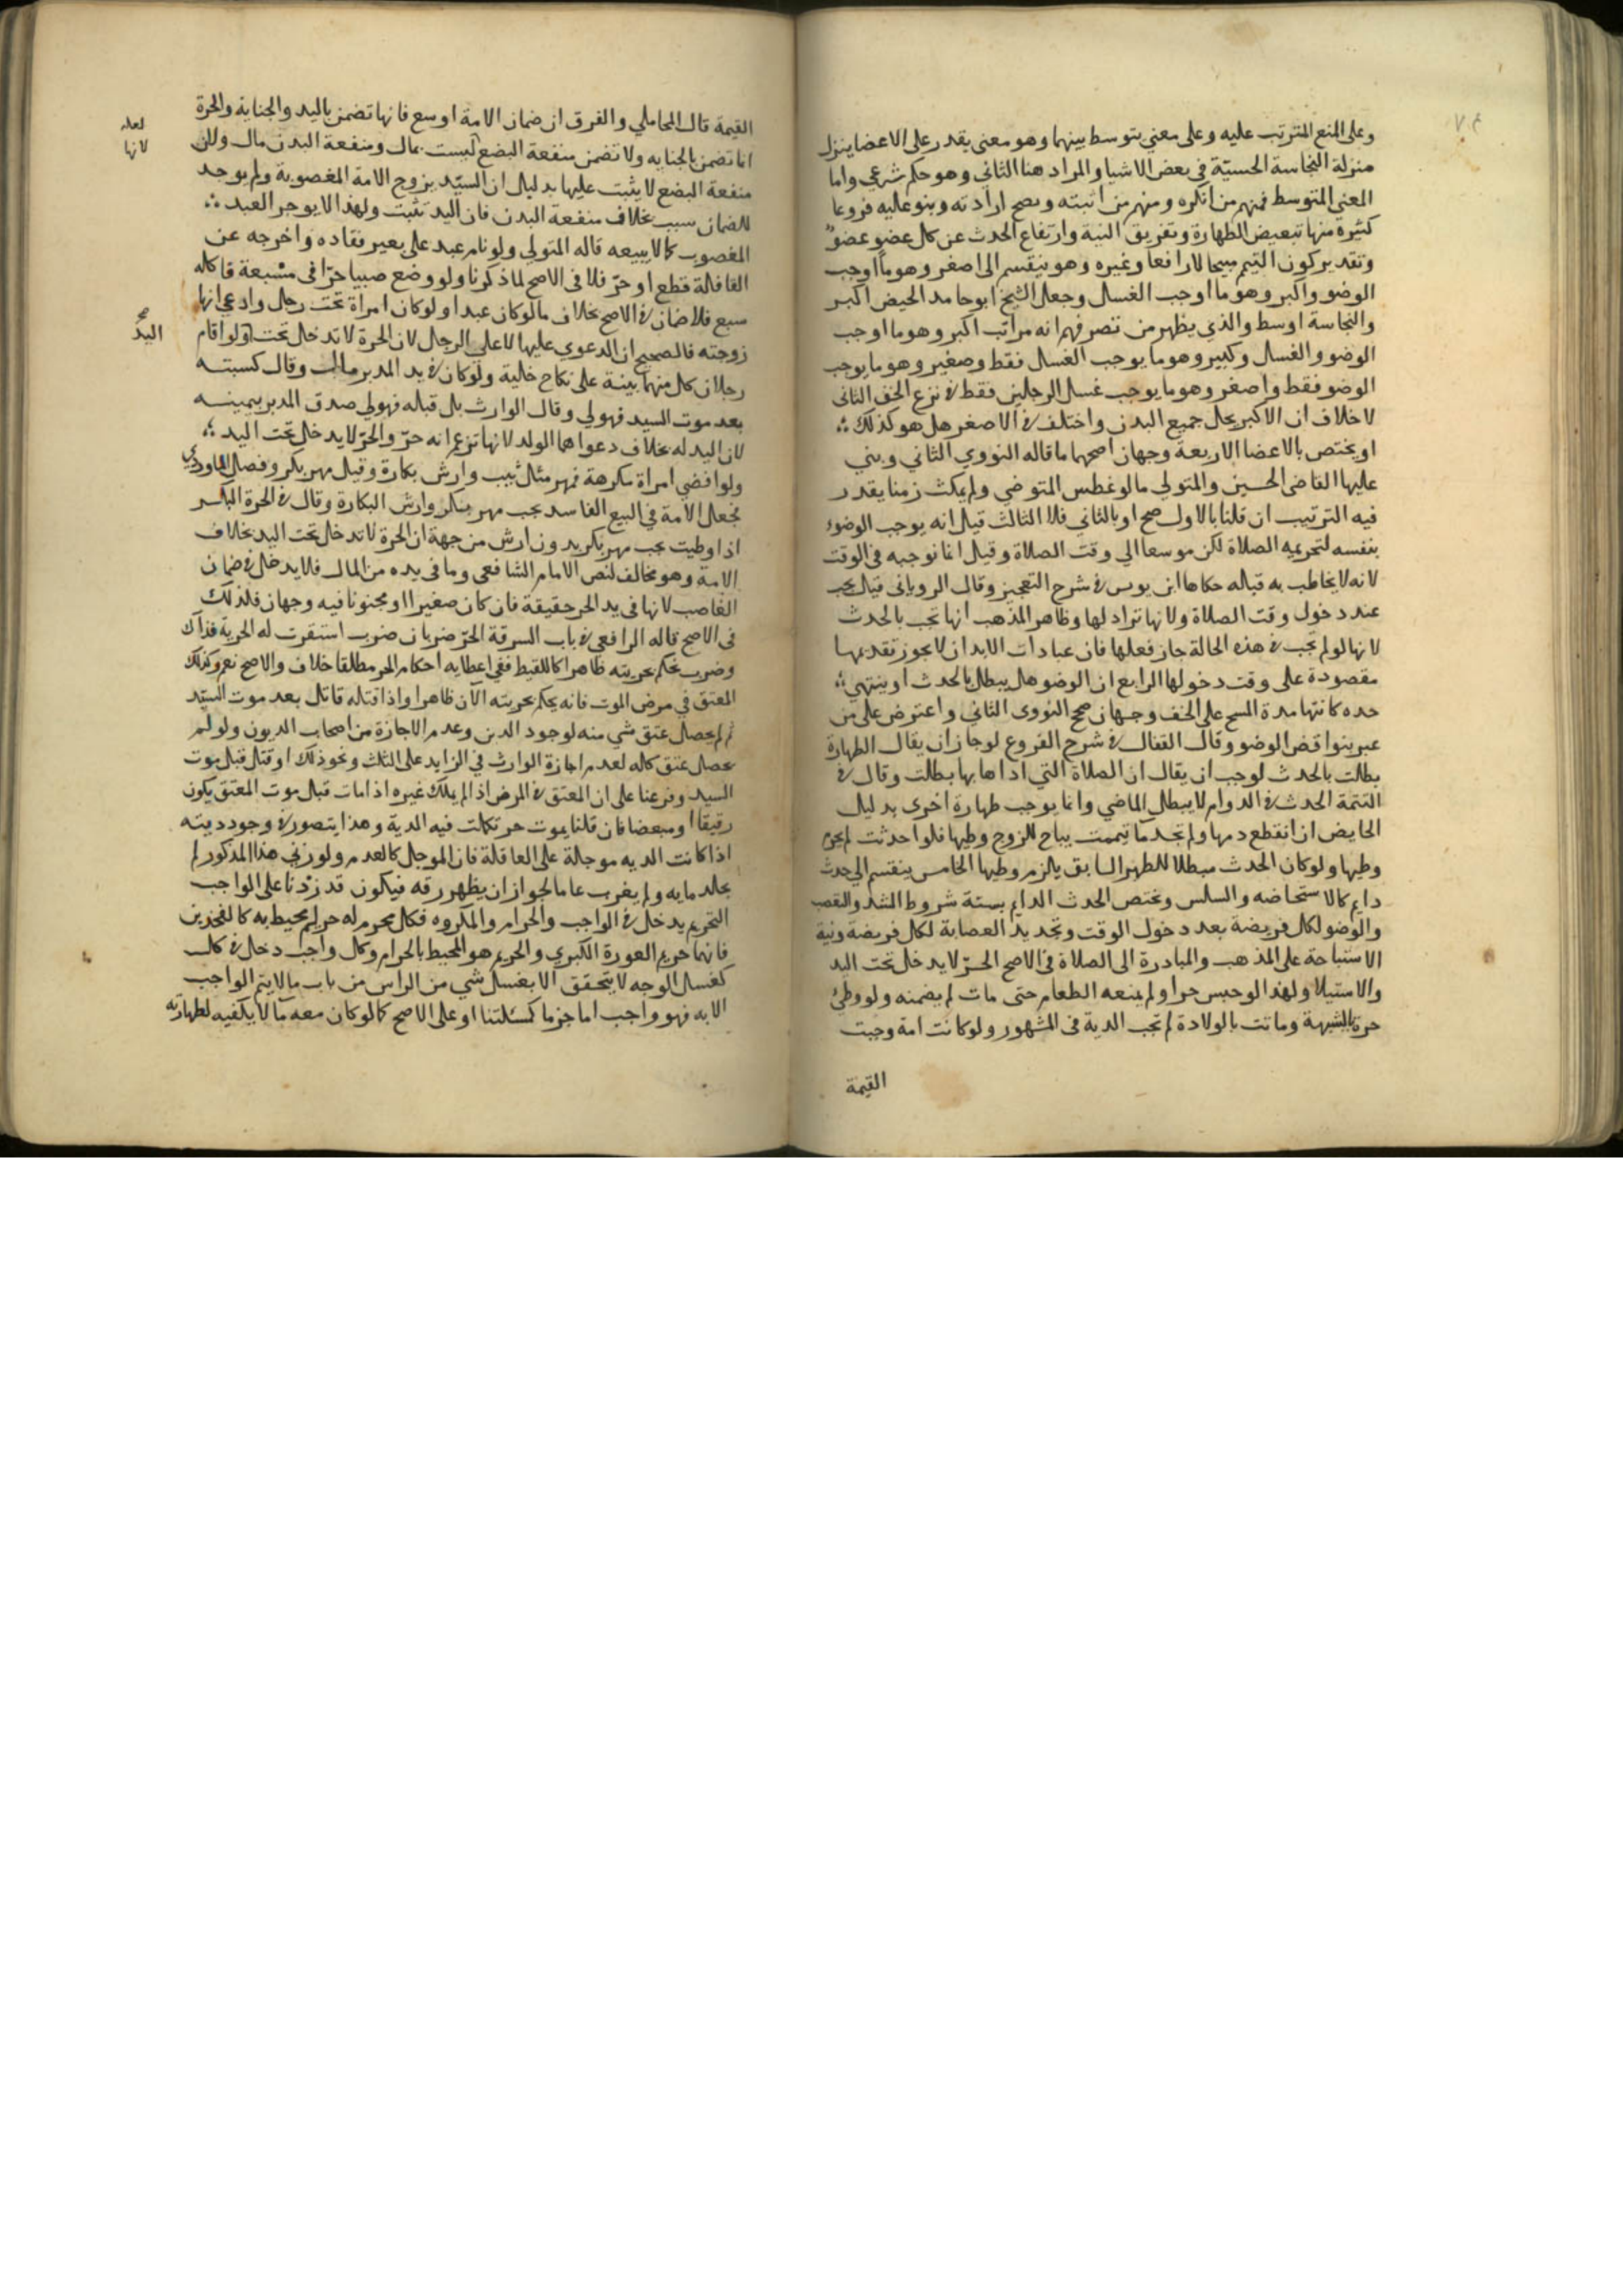 وعلى المنع المترتب عليه وعلى معني يتوسط بينهما وهو معنى يقدر على الاعضا ينزل
منزلة النجاسة الحسيّة في بعض الاشيا والمراد هنا الثاني وهو حكم شرعي واما
المعنى المتوسط فمنهم من انكره ومنهم من اثبته وصح ارادته وبنو عليه فروعا
كثيرة منها تبعيض الطهارة وتفريق النية وارتفاع الحدث عن كل عضو عضو
وتقدير كون التيمم مبيحا لا رافعا وغيره وهو ينقسم الى اصغر وهو ما اوجب
الوضو واكبر وهو ما اوجب الغسل وجعل الشيخ ابو حامد الحيض اكبر
والنجاسة اوسط والذي يظهر من تصرفهم انه مراتب اكبر وهو ما اوجب
الوضو والغسل وكبير وهو ما يوجب الغسل فقط وصغير وهو ما يوجب
الوضو فقط واصغر وهو ما يوجب غسل الرجلين فقط في نزع الخف الثاني
لا خلاف ان الاكبر يحل جميع البدن واختلف في الاصغر هل هو كذلك
او يختص بالاعضا الاربعة وجهان اصحهما ما قاله النووي الثاني وبني
عليها القاضي الحسين والمتولي ما لو غطس المتوضي ولم يمكث زمنا يقدر
فيه الترتيب ان قلنا بالاول صح او بالثاني فلا الثالث قيل انه يوجب الوضوء
بنفسه لتحريمه الصلاة لكن موسعا الي وقت الصلاة وقيل انما نوجبه في الوقت
لانه لا يخاطب به قبله حكاها ابن يونس في شرح التعجيز وقال الروياني قيل يجب
عند دخول وقت الصلاة ولانها تراد لها وظاهر المذهب انها تجب بالحدث
لانها لو لم تجب في هذه الحالة جاز فعلها فان عبادات الابدان لا يجوز تقديمها
مقصودة على وقت دخولها الرابع ان الوضو هل يبطل بالحدث او ينتهي
حده كانتها مدة المسح على الخف وجهان صحح النووى الثاني واعترض على من
عبر بنواقض الوضو وقال القفال في شرح الفروع لو جاز ان يقال الطهارة
بطلت بالحدث لوجب ان يقال ان الصلاة التي اداها بها بطلت وقال في
التتمة الحدث في الدوام لا يبطل الماضي وانما يوجب طهارة اخرى بدليل
الحايض ان انقطع دمها ولم تجد ما تيممت يباح للزوج وطيها فلو احدثت لم يحرم
وطيها ولو كان الحدث مبطلا للطهر السابق يلزم وطيها الخامس ينقسم الي حدث
دايم كالاستحاضه والسلس ويختص الحدث الدايم بستة شروط الشد والتعصب
والوضو لكل فريضة بعد دخول الوقت وتجديد العصابة لكل فريضة ونية
الاستباحة على المذهب والمبادرة الى الصلاة في الاصح الحـرّ لا يدخل تحت اليد
والاستيلا ولهذا لو حبس حرا ولم يمنعه الطعام حتى مات لم يضمنه ولو وطئ
حرة بالشبهة وماتت بالولادة لم تجب الدية في المشهور ولو كانت امة وجبت
القيمة
القيمة قال المحاملي والفرق ان ضمان الامة اوسع فانها تضمن باليد والجناية والحرة
انما تضمن بالجنايه ولا تضمن منفعة البضع ليست بمال ومنفعة البدن مال ولان
لعله
لانها
منفعة البضع لا يثبت عليها بدليل ان السيّد يزوج الامة المغصوبة ولم يوجد
للضمان سبب بخلاف منفعة البدن فان اليد تثبت ولهذا لا يوجر العبد
المغصوب كما لا يبيعه قاله المتولي ولو نام عبد على بعير فقاده واخرجه عن
القافلة قطع او حرّ فلا في الاصح لما ذكرنا ولو وضع صبيا حرّا في مسبعة فاكله
سبع فلا ضمان في الاصح بخلاف ما لو كان عبدا ولو كان امراة تحت رجل وادعي انها
زوجته فالصحيح ان الدعوي عليها لا على الرجل لان الحرة لا تدخل تحت ولو اقام
صح
اليد
رجلان كل منهما بينة على نكاح خلية ولو كان في يد المدبر مال وقال كسبته
بعد موت السيد فهو لي وقال الوارث بل قبله فهو لي صدق المدبر بيمينه
لان اليد له بخلاف دعواهما الولد لانها تزعم انه حرّ والحرّ لا يدخل تحت اليد
ولو افضي امراة مكرهة فمهر مثل ثيب وارش بكارة وقيل مهر بكر وفصل الماوردي
فجعل الامة في البيع الفاسد يجب مهر بكر وارش البكارة وقال في الحرة البكر
اذا وطيت يجب مهر بكر بدون ارش من جهة ان الحرة لا تدخل تحت اليد بخلاف
الامة وهو مخالف لنص الامام الشافعي وما في يده من المال فلا يدخل في ضمان
الغاصب لانها في يد الحر حقيقة فان كان صغيرا او مجنونا فيه وجهان فلذلك
في الاصح قاله الرافعي في باب السرقة الحرّ ضربان ضرب استقرت له الحرية فذاك
وضرب يحكم بحريته ظاهرا كاللقيط ففي اعطايه احكام الحر مطلقا خلاف والاصح نعم وكذلك
المعتق في مرض الموت فانه يحكم بحريته الان ظاهرا واذا قتله قاتل بعد موت السيّد
ثم لم يحصل عتق شي منه لوجود الدين وعدم الاجازة من اصحاب الديون ولو لم
يحصل عتق كله لعدم اجازة الوارث في الزايد على الثلث ونحو ذلك او قتل قبل موت
السيد وفرعنا على ان المعتق في المرض اذ الم يملك غيره اذا مات قبل موت المعتق يكون
رقيقا او مبعضا فان قلنا يموت حر تكملت فيه الدية وهذا يتصور في وجود ديته
اذا كانت الديه موجلة على العاقلة فان الموجل كالعدم ولو زني هذا المذكور لم
يجلد مايه ولم يغرب عاما لجواز ان يظهر رقه فيكون قد زدنا على الواجب
التحريم يدخل في الواجب والحرام والمكروه فكل محرم له حريم يحيط به كالفخذين
فانهما حريم العورة الكبري والحريم هو المحيط بالحرام وكل واجب دخل في كل
كغسل الوجه لا يتحقق الا بغسل شي من الراس من باب ما لا يتم الواجب
الا به فهو واجب اما جزما كمسئلتنا او على الاصح كما لو كان معه ما لا يكفيه لطهارته